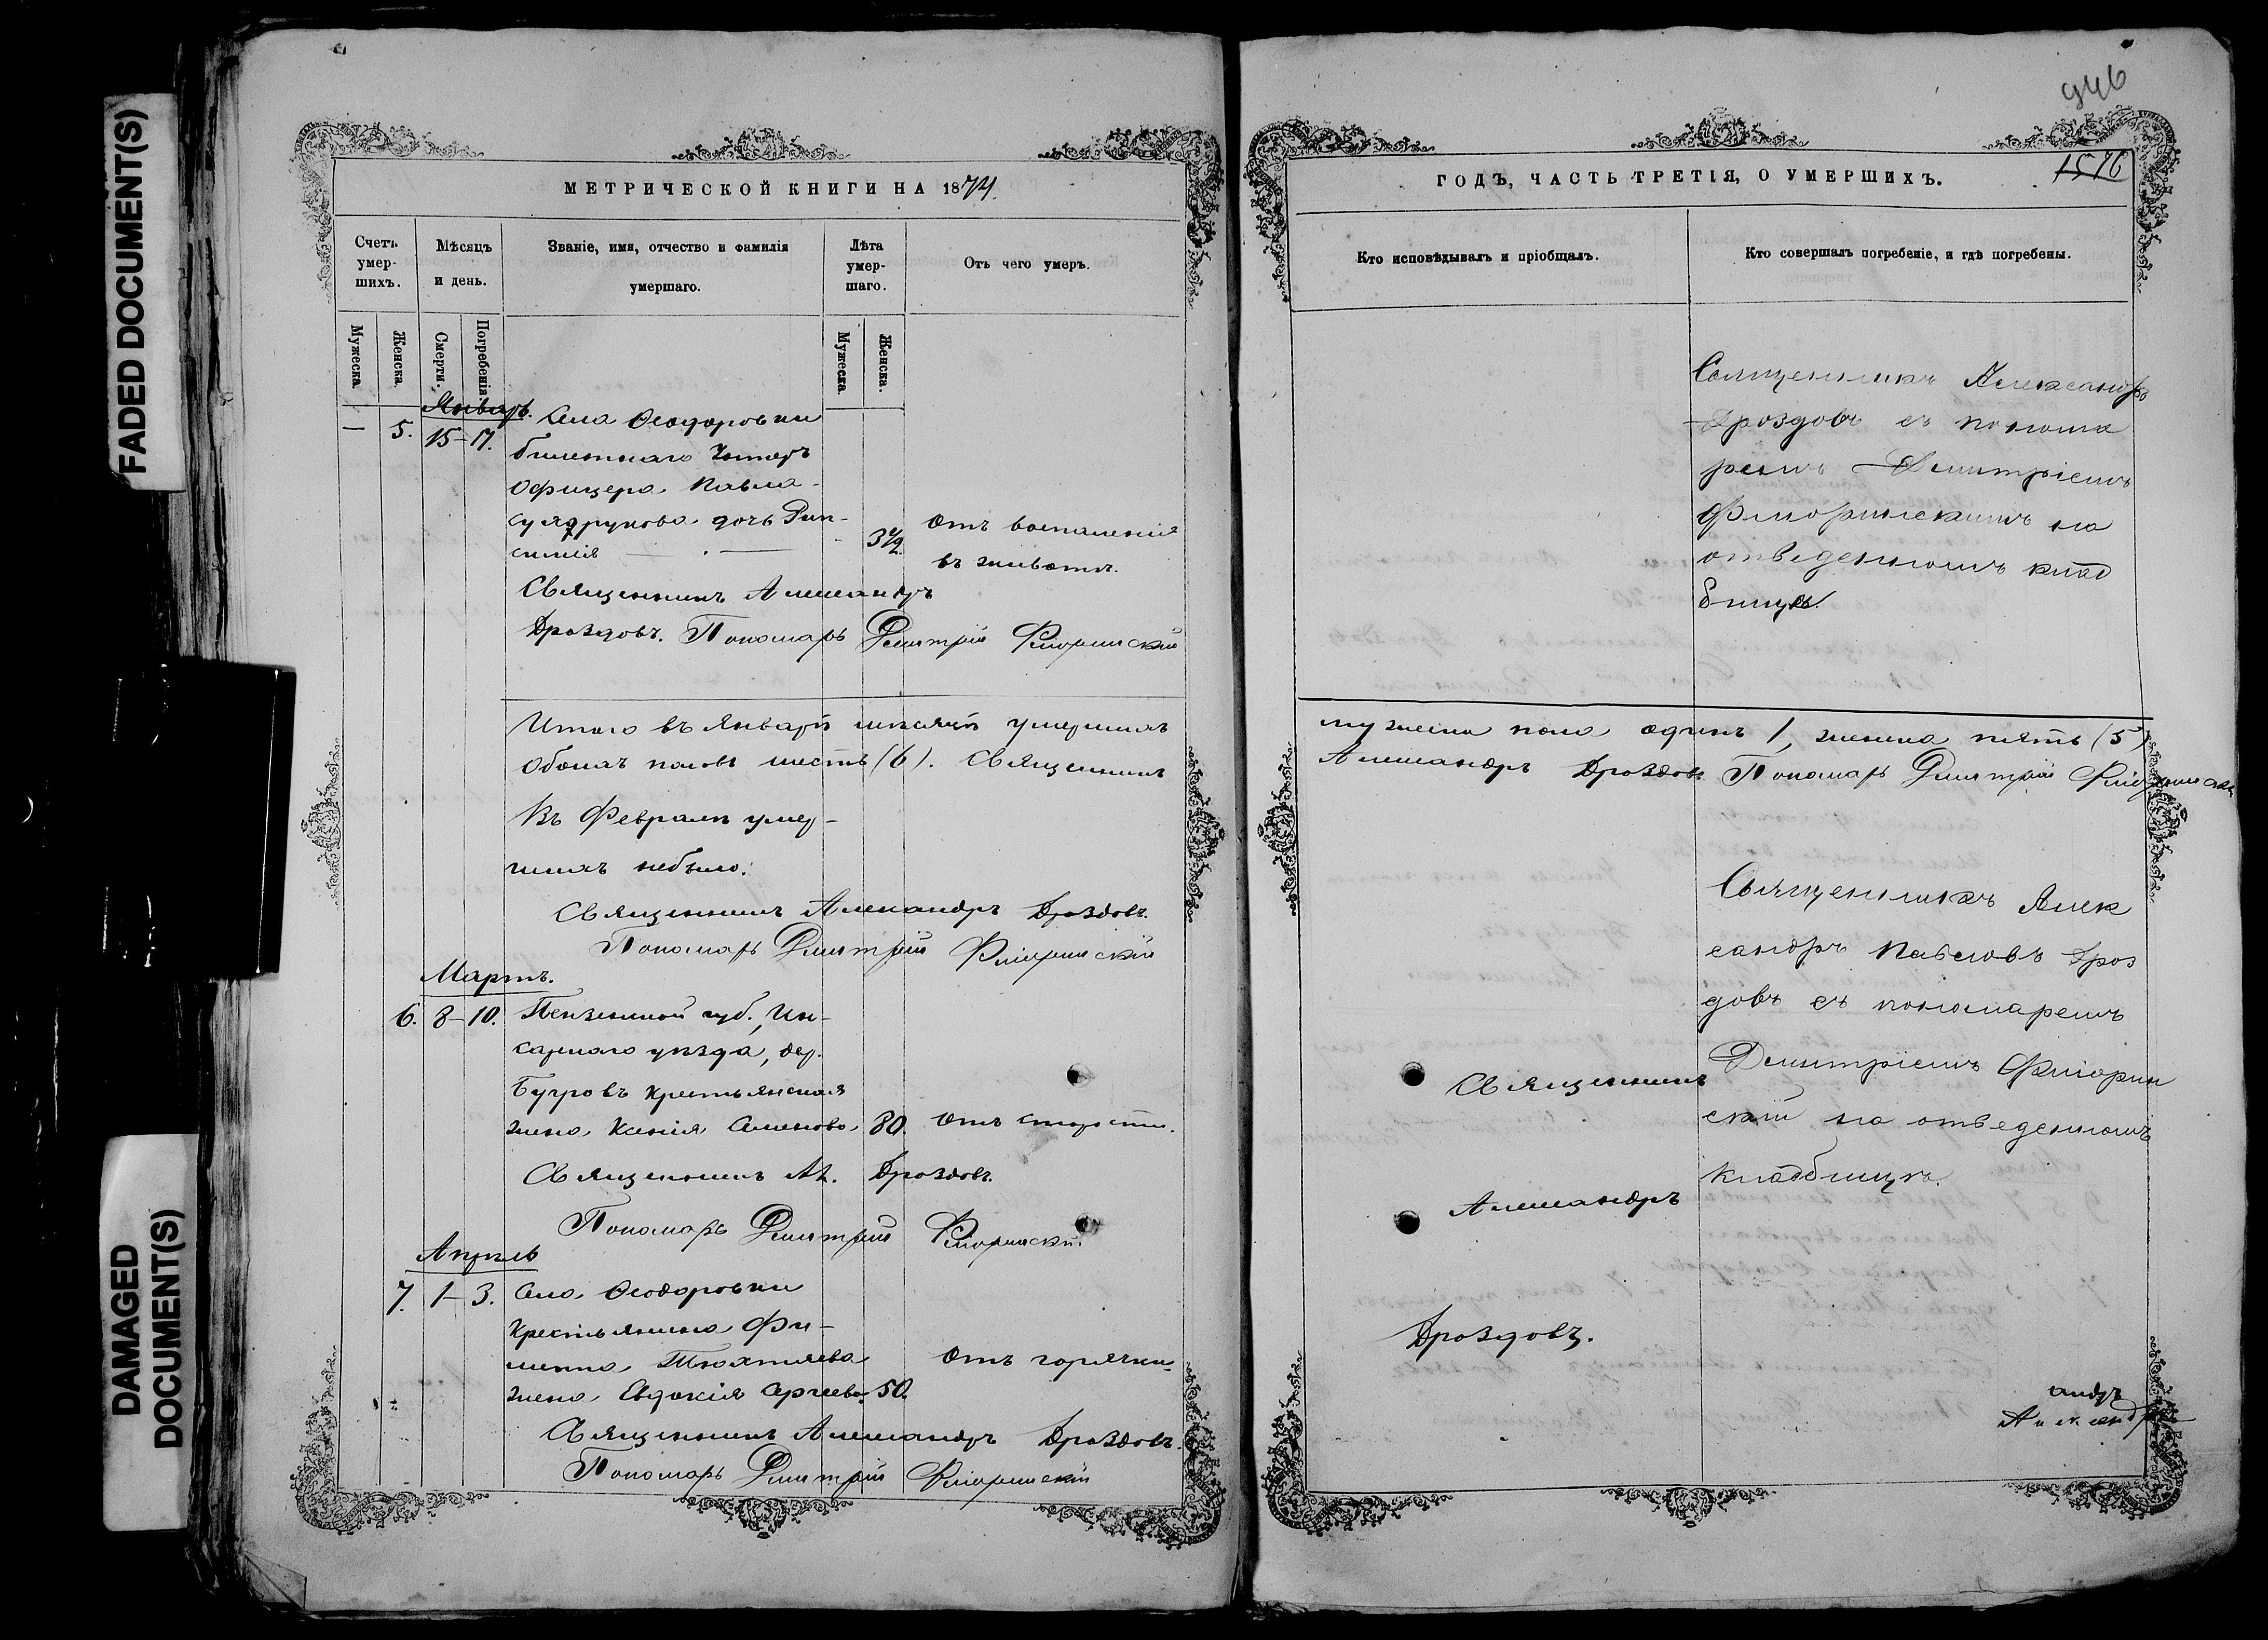 FADED DOCUMENT(S)
DAMAGED
DOCUMENT(S)
МЕТРИЧЕСКОЙ КНИГИ НА 1874.
Счетъ умер-шихъ.
Мѣсяцъ и день.
Званіе, имя, отчество и фамилія умершаго.
Лѣта умер-шаго.
Отъ чего умеръ.
Мужеска.
Женска.
Смерти.
Погребенія.
Мужеска.
Женска.
Январь.
— 5. 15–17. Села Ѳеодоровки
билетнаго Унтеръ
Офицера Павла
дочь Рип-
симія 3½. отъ воспаленія
въ животѣ.
Священникъ Александръ
Дроздовъ. Пономарь Димитрій Флоринскій
Итого въ Январѣ мѣсяцѣ умершихъ
Обоихъ половъ шесть (6). Священникъ
Въ Февралѣ умер-
шихъ небыло.
Священникъ Александръ Дроздовъ.
Пономарь Димитрій Флоринскій
Мартъ.
6. 8–10. Пензенской губ., Ин-
сарскаго уѣзда, дер.
Бугровъ крестьянская
жена Ксенія Семенова 80. отъ старости.
Священникъ Ал. Дроздовъ.
Пономарь Димитрій Флоринскій
Апрѣль
7. 1–3. Села Ѳеодоровки
Крестьянина Фи-
липпа Тюхтяева отъ горячки
жена Евдокія Сергеева 50.
Священникъ Александръ Дроздовъ.
Пономарь Димитрій Флоринскій
946
1576
ГОДЪ, ЧАСТЬ ТРЕТІЯ, О УМЕРШИХЪ.
Кто исповѣдывалъ и пріобщалъ.
Кто совершалъ погребеніе, и гдѣ погребены.
Священникъ Александръ
Дроздовъ съ понома
ремъ Димитріемъ
Флоринскимъ на
отведенномъ клад
бищѣ.
мужеска пола одинъ 1, женска пять (5)
Александръ Дроздовъ Пономарь Димитрій Флоринскій
Священникъ Алек
сандръ Павловъ Дроз
довъ съ пономаремъ
Димитріемъ Флорин
скій на отведенномъ
кладбищѣ.
Священникъ
Александръ
Дроздовъ.
андръ
Александръ